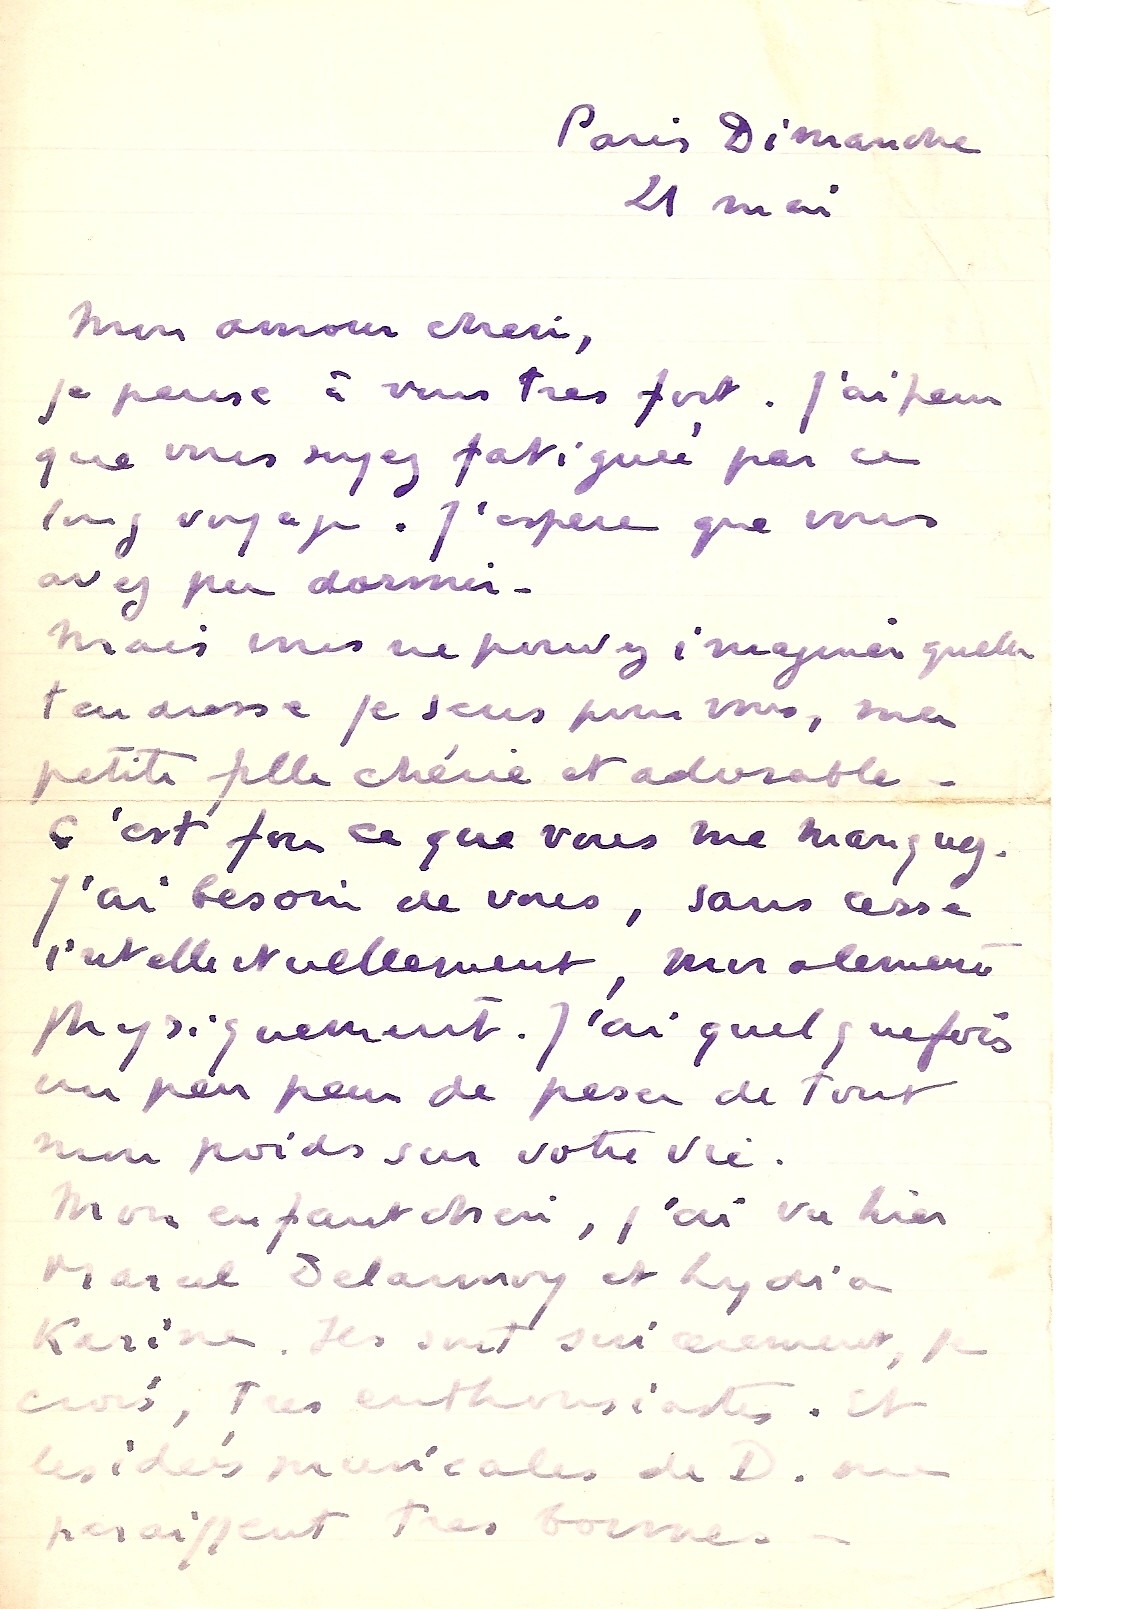 Paris Dimanche
21 mai
Mon amour cheri,
je pense à vous tres fort. J'ai peur
que vous soyez fatiguée par ce
long voyage. J'espere que vous
avez pu dormir -
Mais vous ne pouvez imaginer quelle
tendresse je sens pour vous, ma
petite fille chérie et adorable -
C'est fou ce que vous me manquez.
J'ai besoin de vous, sans cesse
intellectuellement, moralement
physiquement. J'ai quelquefois
un peu peur de peser de tout
mon poids sur votre vie.
Mon enfant cheri, j'ai vu hier
Marcel Delannoy et Lydia
Karine. Ils sont sincerement, je
crois, tres enthousiastes. Et
les idées musicales de D. me
paraissent tres bonnes -